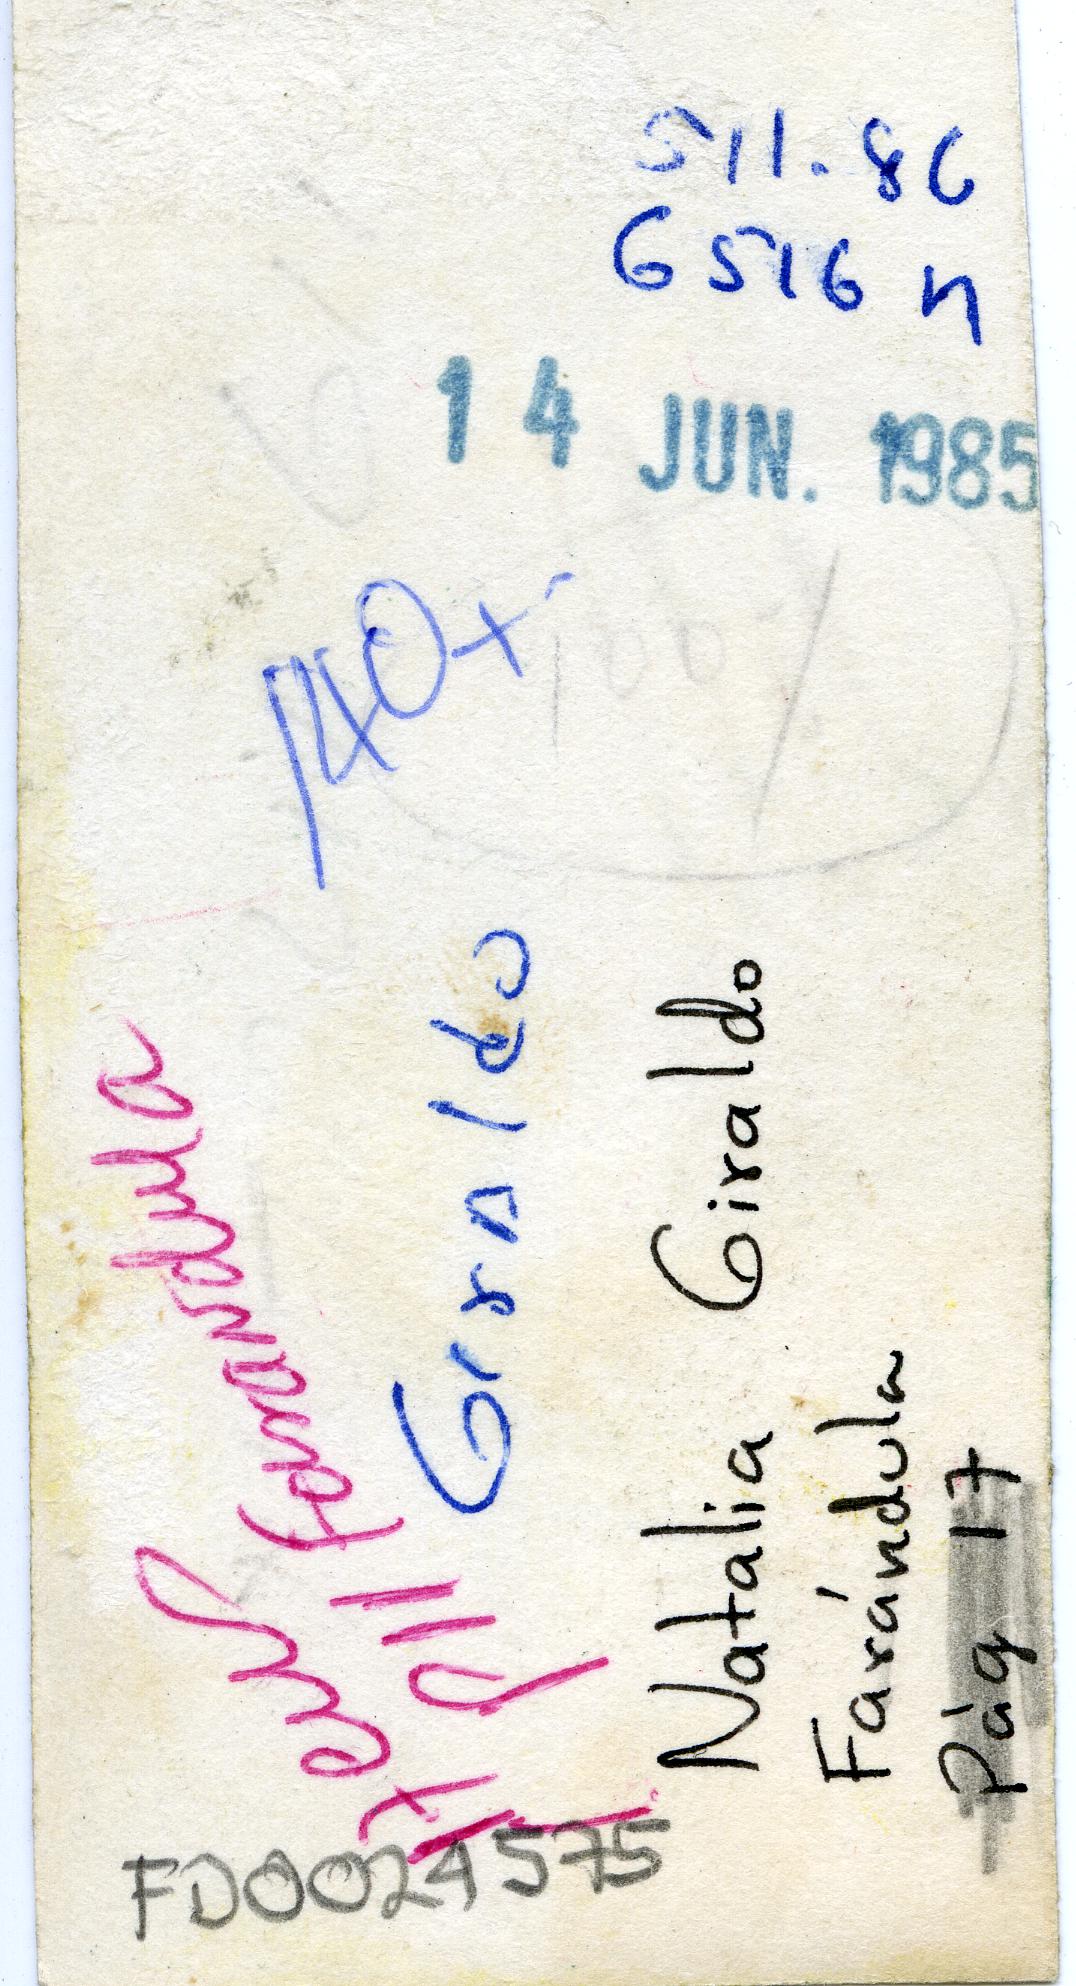 511.86
G516n
14 JUN. 1985
140+
100%
Giraldo
Natalia Giraldo
Farándula
Pág 17
farandula
FD0024575